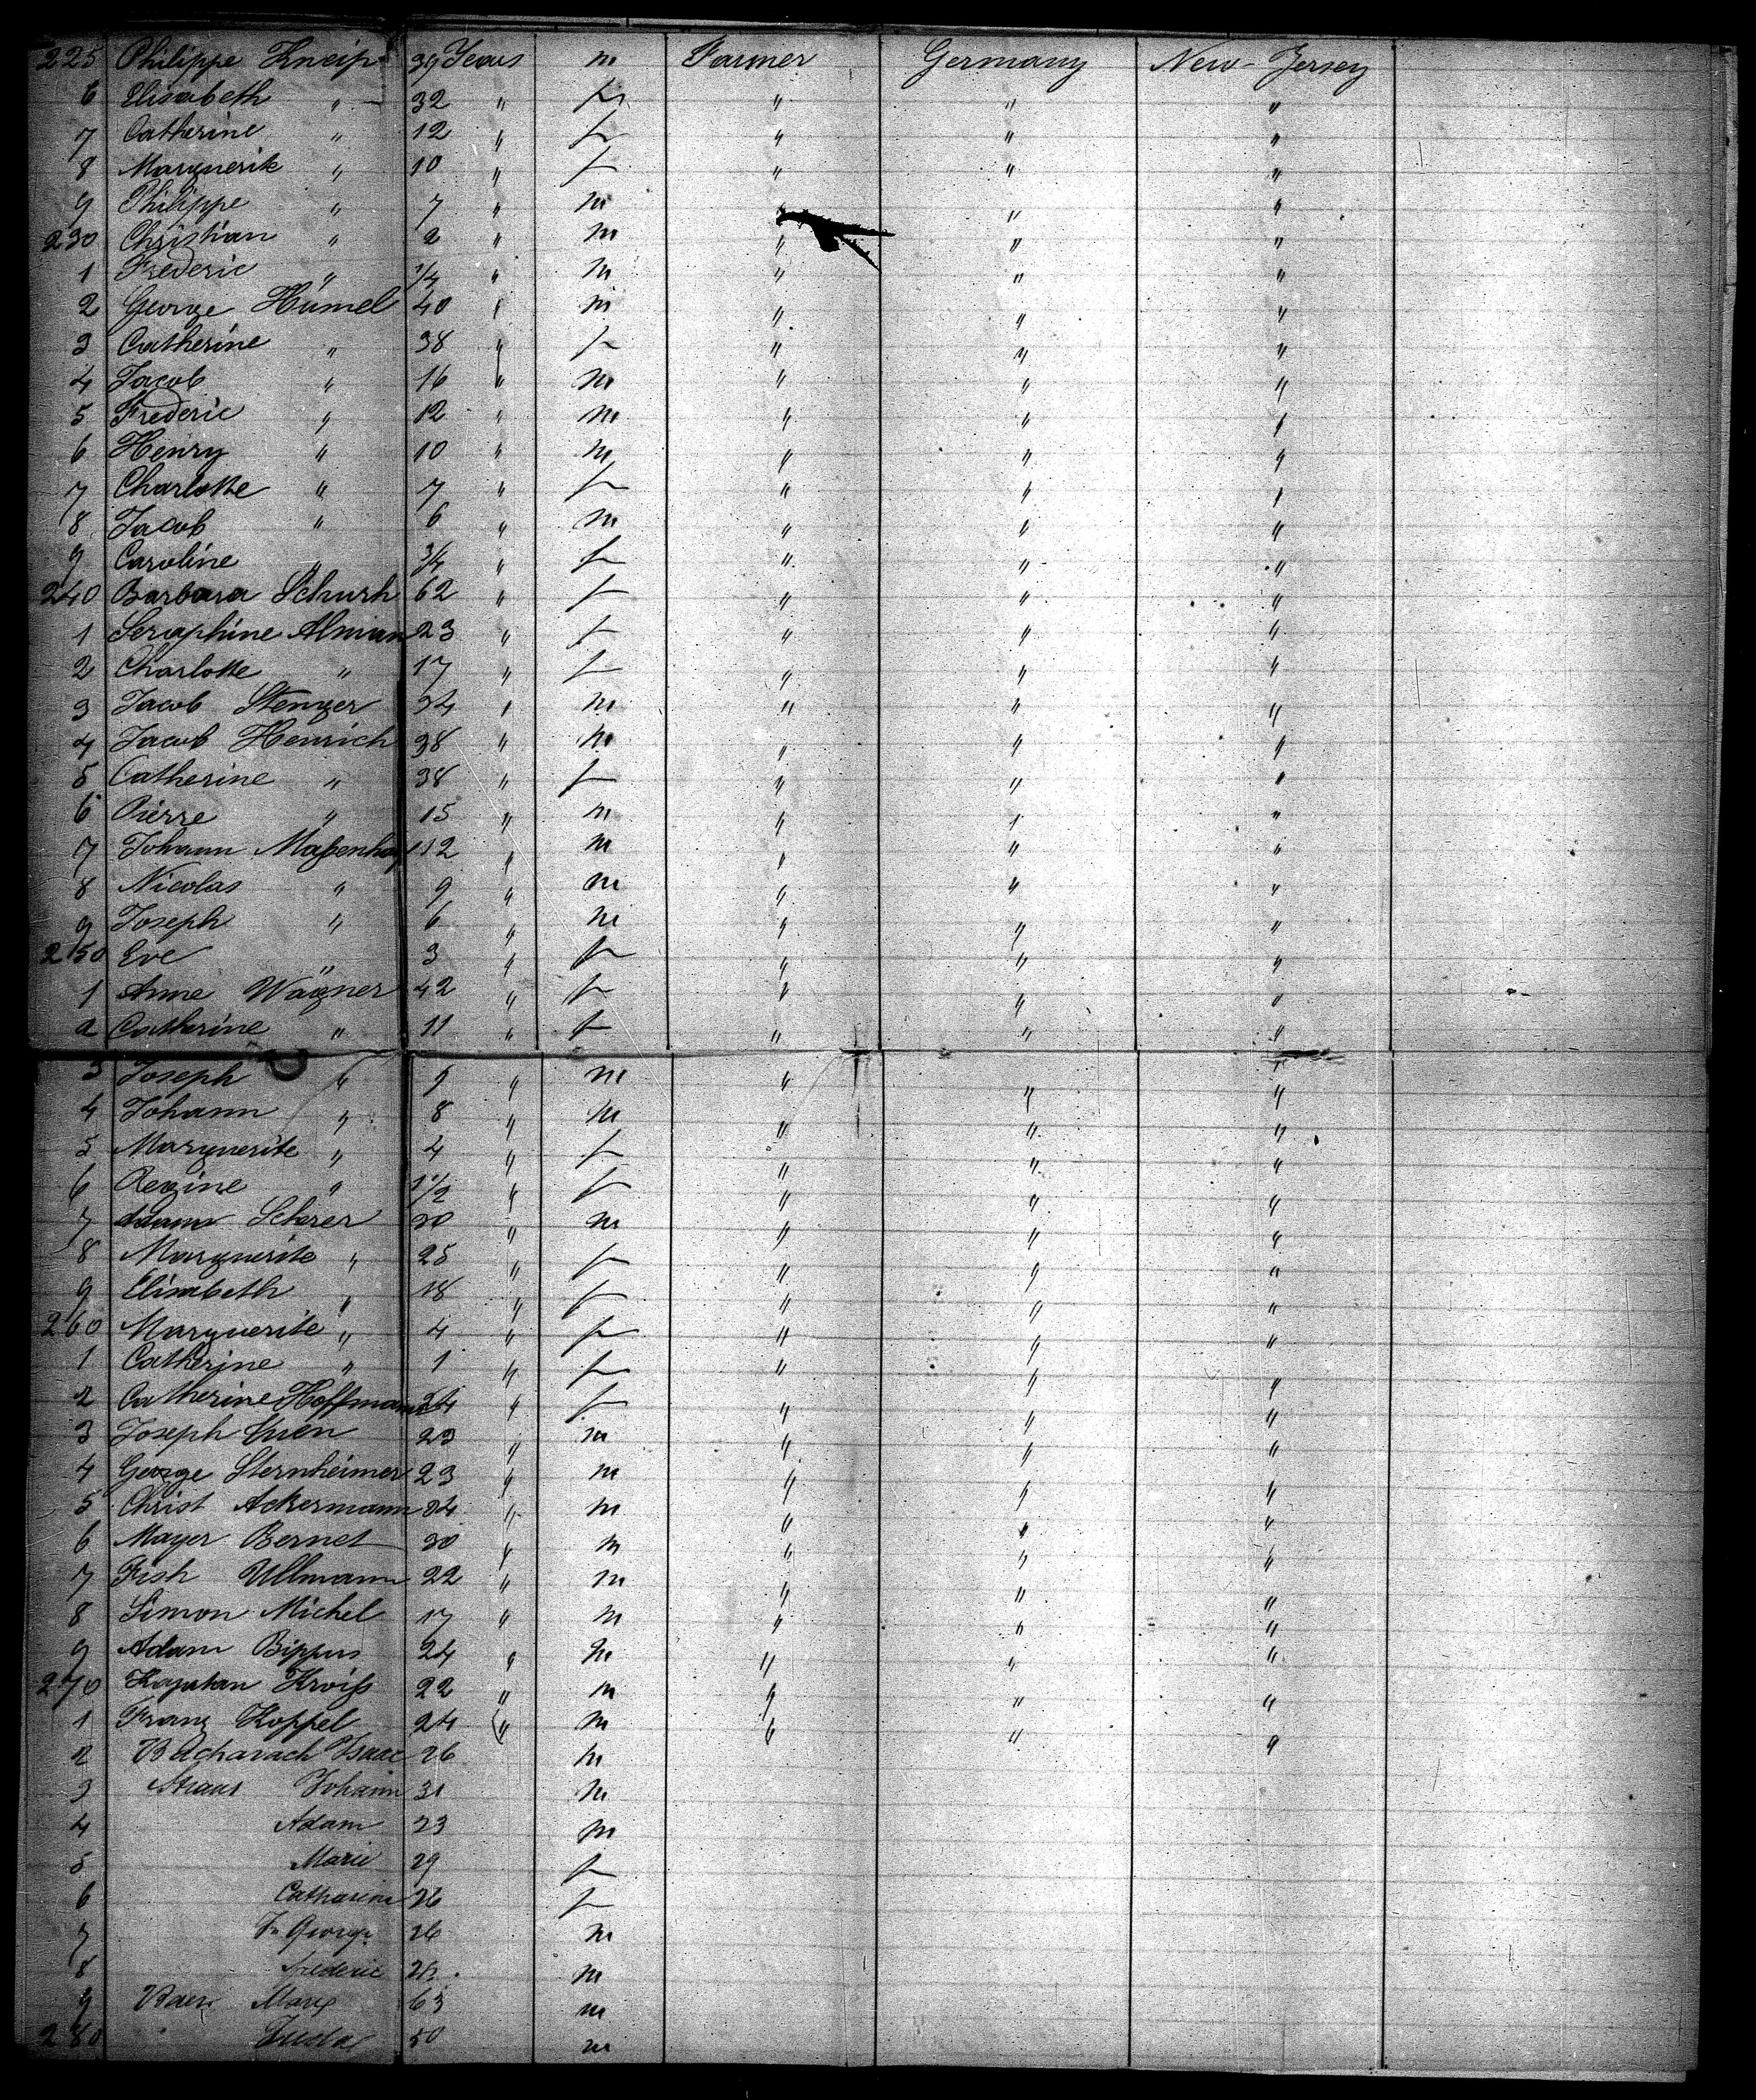 225 Philippe Kneip 39 Years m Farmer Germany New-Jersey
6 Elisabeth " 32 " f " " "
7 Catherine " 12 " f " " "
8 Marguerite " 10 " f " " "
9 Philippe " 7 " m " " "
230 Christian " 2 " m " " "
1 Frederic " 1/4 " m " " "
2 George Hümel 40 " m " " "
3 Catherine " 38 " f " " "
4 Jacob " 16 " m " " "
5 Frederic " 12 " m " " "
6 Henry " 10 " m " " "
7 Charlotte " 7 " f " " "
8 Jacob " 6 " m " " "
9 Caroline " 3/4 " f " " "
240 Barbara Schurh 62 " f " " "
1 Seraphine 23 " f " " "
2 Charlotte " 17 " f " " "
3 Jacob Stenger 34 " m " " "
4 Jacob Henrich 38 " m " " "
5 Catherine " 38 " f " " "
6 Pierre " 15 " m " " "
7 Johann 12 " m " " "
8 Nicolas " 9 " m " " "
9 Joseph " 6 " m " " "
250 Eve " 3 " f " " "
1 Anne Wagner 42 " f " " "
2 Catherine " 11 " f " " "
3 Joseph " 9 " m " " "
4 Johann " 8 " m " " "
5 Marguerite " 4 " f " " "
6 Regine " 1 1/2 " f " " "
7 Adam Scherer 30 " m " " "
8 Marguerite " 25 " f " " "
9 Elisabeth " 18 " f " " "
260 Marguerite " 4 " f " " "
1 Catherine " 1 " f " " "
2 Catherine Hoffmann 24 " f " " "
3 Joseph 23 " m " " "
4 George Sternheimer 23 " m " " "
5 Christ Ackermann 34 " m " " "
6 Mayer Bernet 30 " m " " "
7 Fish Ullmann 22 " m " " "
8 Simon Michel 17 " m " " "
9 Adam Bippus 24 " m " " "
270 Kroiß 22 " m " " "
1 Franz Koppel 24 " m " " "
2 Bacharach Isaac 26 m
3 Straus Johann 31 m
4 Adam 23 m
5 Marie 29 f
6 Catharine 26 f
7 George 26 m
8 Frederic m
9 Baer Marx 63 m
280 Juda 50 m